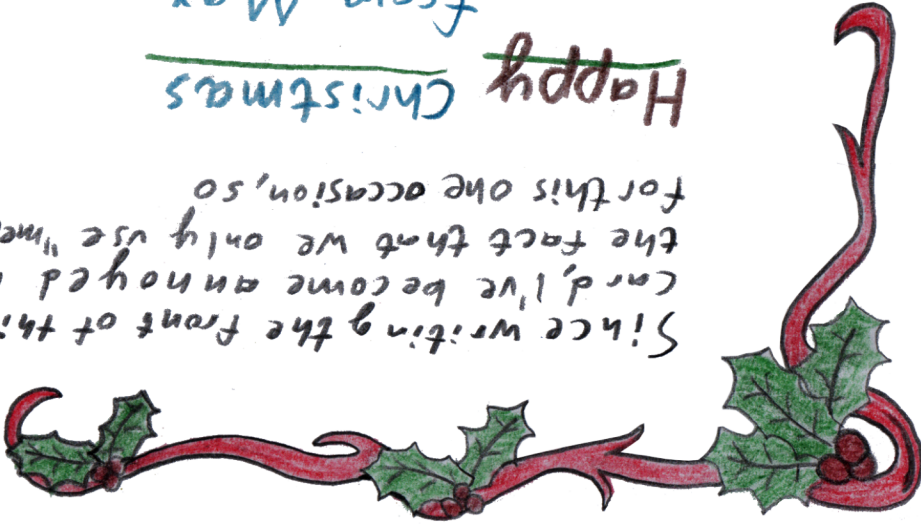 Since writing the front of this
card, I've become annoyed
the fact that we only use "me
for this one occasion, so
Happy Christmas
from Max